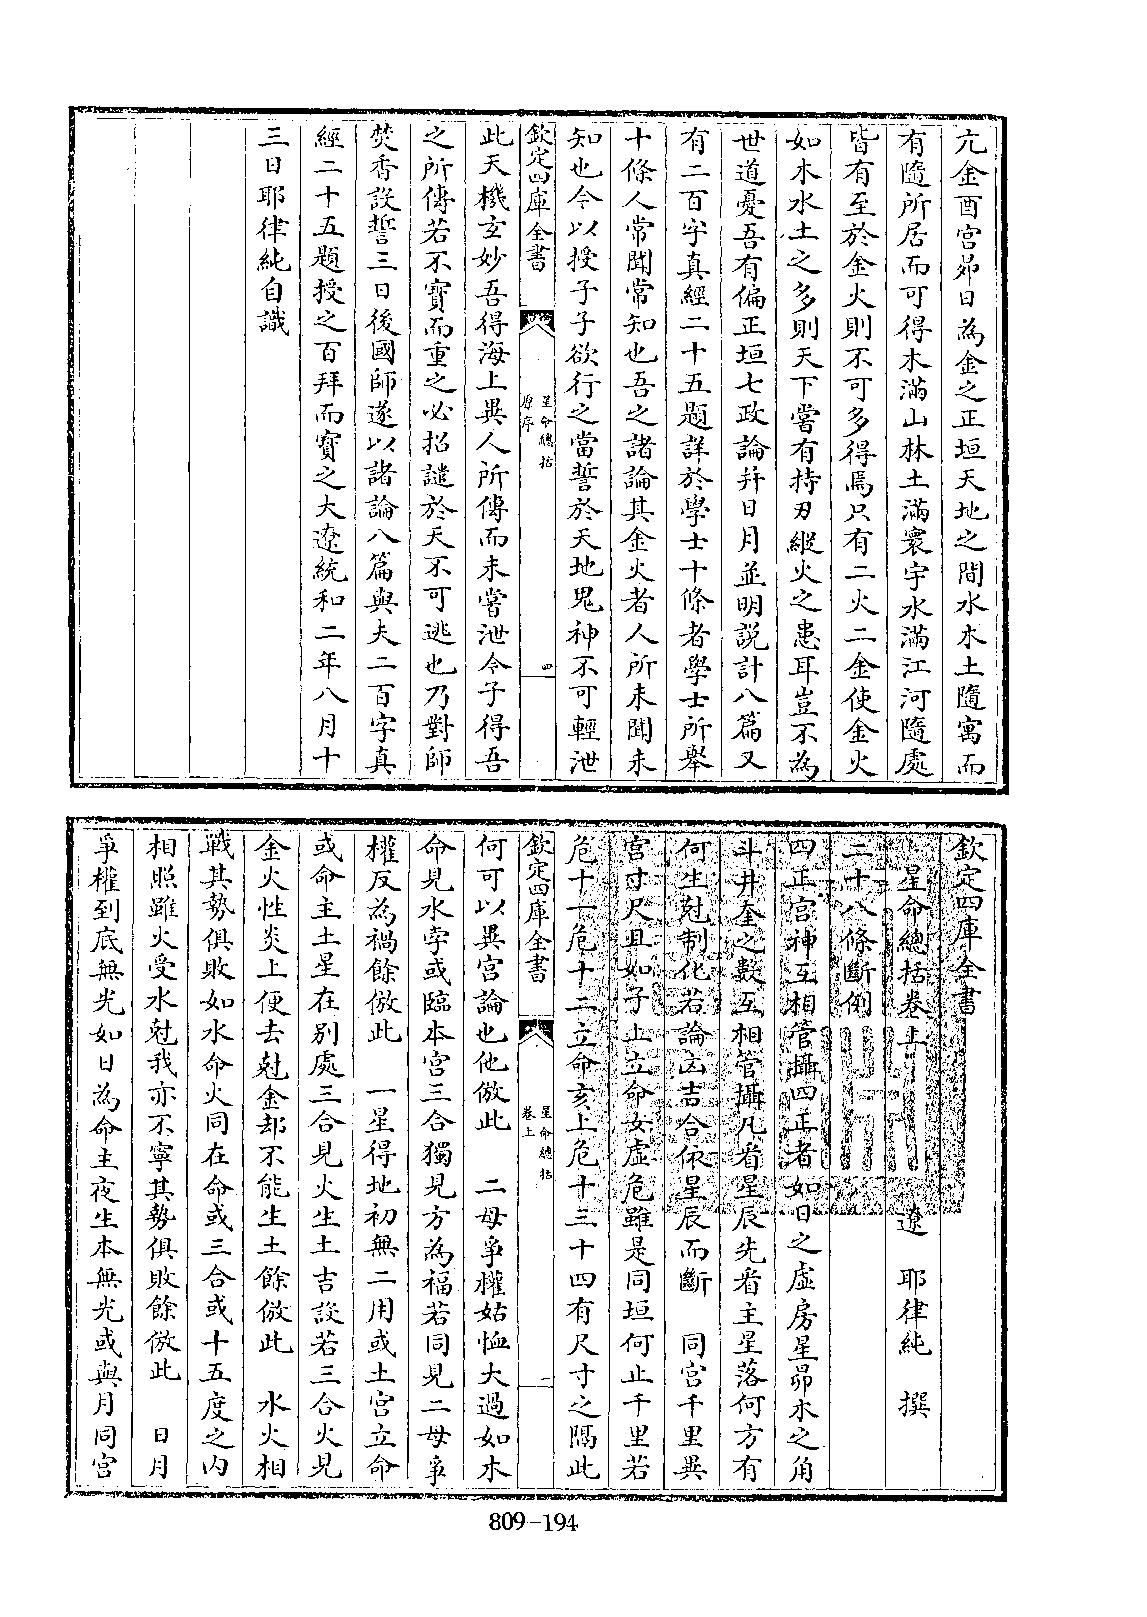 亢金酉宮昴日為金之正垣天地之間水木土隨寓而
有隨所居而可得木滿山林土滿寰宇水滿江河隨處
皆有至於金火則不可多得焉只有二火二金使金火
如木水土之多則天下嘗有持刃縱火之患耳豈不為
世道憂吾有偏正垣七政論并日月並明說計八篇又
有二百字真經二十五題詳於學士十條者學士所舉
十條人常聞常知也吾之諸論其金火者人所未聞未
知也今以授子子欲行之當誓於天地鬼神不可輕泄
欽定四庫全書
星命總括
原序
四
此天機玄妙吾得海上異人所傳而未嘗泄今子得吾
之所傳若不寳而重之必招譴於天不可逃也乃對師
焚香設誓三日後國師遂以諸論八篇與夫二百字真
經二十五題授之百拜而寳之大遼統和二年八月十
三日耶律純自識
欽定四庫全書
星命總括卷上
遼 耶律純 撰
二十八條斷例
四正宮神互相管攝四正者如日之虛房星昴木之角
斗井奎之數互相管攝凡看星辰先看主星落何方有
何生尅制化若論凶吉合依星辰而斷 同宮千里異
宮寸尺且如子止立命女虛危雖是同垣何止千里若
危十一危十二立命亥上危十三十四有尺寸之隔此
欽定四庫全書
星命總括
卷上
一
何可以異宮論也他倣此 二母爭權姑恤大過如木
命見水孛或臨本宮三合獨見方為福若同見二母爭
權反為禍餘倣此 一星得地初無二用或土宮立命
或命主土星在别處三合見火生土吉設若三合火見
金火性炎上便去尅金却不能生土餘倣此 水火相
戰其勢俱敗如水命火同在命或三合或十五度之内
相照雖火受水尅我亦不寧其勢俱敗餘倣此 日月
爭權到底無光如日為命主夜生本無光或與月同宮
809-194